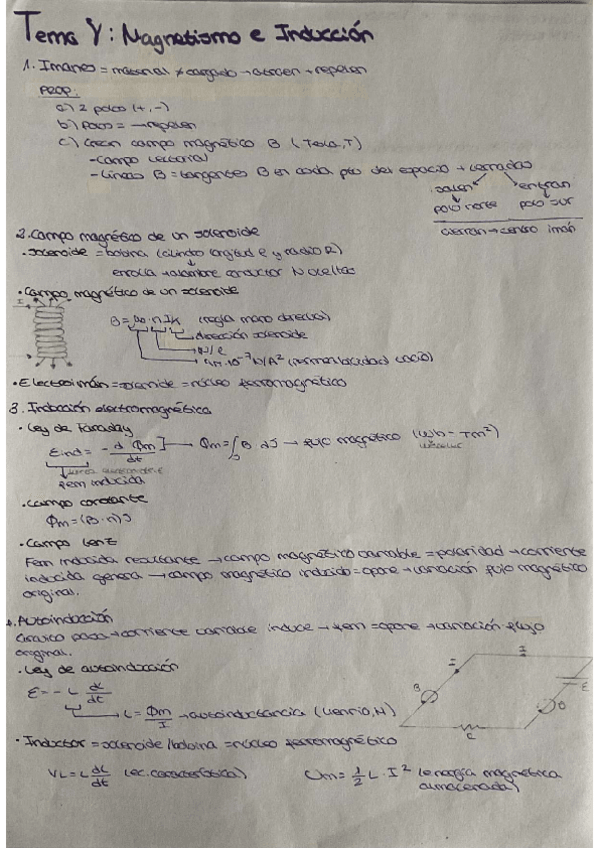 Tema 4: Magnetismo e Inducción
1. Imanes = material ≠ cargado → atraen + repelen
PROP.
a) 2 polos (+, -)
b) Polos = → repelen
c) Crean campo magnético B (Tesla, T)
- Campo vectorial
- Líneas B = tangentes B en cada pto del espacio + cerradas
salen entran
polo norte polo sur
cierran → centro imán
2. Campo magnético de un solenoide
• Solenoide = bobina (cilindro longitud l y radio R)
enrolla → alambre conductor N vueltas
• Campo magnético de un solenoide
I
B = μ₀ · n I k (regla mano derecha)
dirección solenoide
N/l
4π·10⁻⁷ N/A² (permeabilidad vacío)
• Electroimán = solenoide = núcleo ferromagnético
3. Inducción electromagnética
• Ley de Faraday
εind = - d Φm / dt → Φm = ∫ B dS → flujo magnético (Wb = Tm²)
fem inducida
• Campo constante
Φm = (B · n) S
• Campo Lenz
Fem inducida resultante → campo magnético variable = polaridad → corriente
inducida genera → campo magnético inducido = opone → variación flujo magnético
original.
4. Autoinducción
Circuito pasa → corriente variable induce → fem = opone → variación flujo
original.
• Ley de autoinducción
ε = - L di/dt
L = Φm/I → autoinductancia (Henrio, H)
I I B ε C
• Inductor = solenoide/bobina = núcleo ferromagnético
VL = L di/dt (ec. característica) Um = 1/2 L · I² (energía magnética
almacenada)